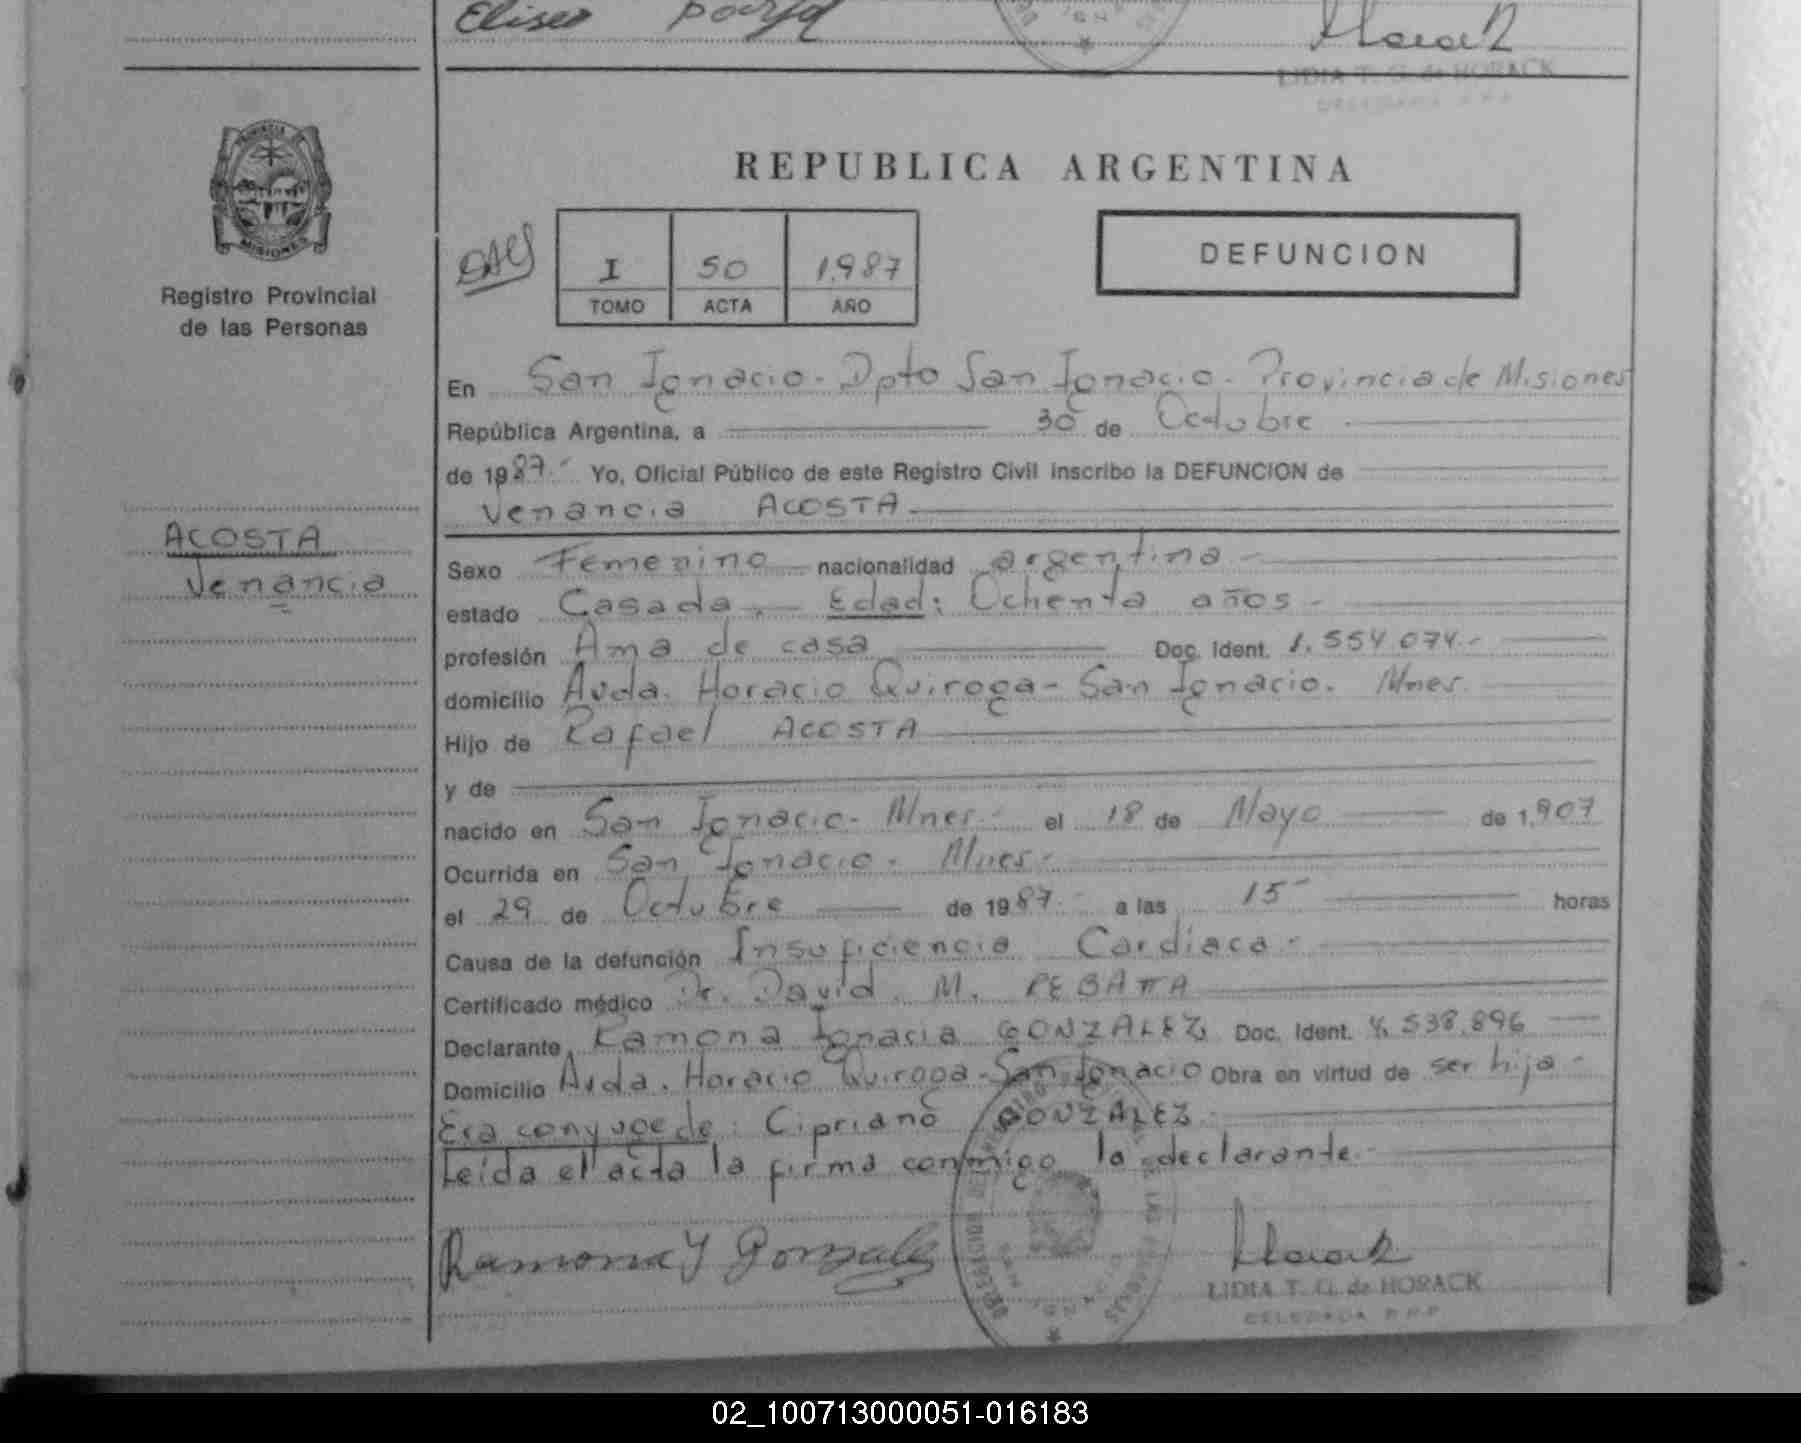 Eliseo
Horack
LIDIA T. G. de HORACK
DELEGADA R.P.P
PROVINCIA DE
MISIONES
Registro Provincial
de las Personas
REPUBLICA ARGENTINA
I 50 1.987
TOMO ACTA AÑO
DEFUNCION
En San Ignacio - Dpto San Ignacio - Provincia de Misiones
República Argentina, a 30 de Octubre
de 1987.- Yo, Oficial Público de este Registro Civil inscribo la DEFUNCION de
Venancia ACOSTA
ACOSTA
Venancia
Sexo Femenino nacionalidad argentina -
estado Casada. - Edad: Ochenta años -
profesión Ama de casa Doc. Ident. 1.554.074.-
domicilio Avda. Horacio Quiroga - San Ignacio. Mnes.
Hijo de Rafael ACOSTA
y de
nacido en San Ignacio - Mnes.- el 18 de Mayo de 1.907
Ocurrida en San Ignacio - Mnes.-
el 29 de Octubre de 1987.- a las 15- horas
Causa de la defunción Insuficiencia Cardiaca -
Certificado médico Dr. David M.
Declarante Ramona Ignacia GONZALEZ Doc. Ident. 4.538.896
Domicilio Avda. Horacio Quiroga - San Ignacio Obra en virtud de ser hija -
Era conyuge de: Cipriano GONZALEZ.
Leída el acta la firma conmigo la declarante.-
Ramona Y Gonzalez
Horack
LIDIA T. G. de HORACK
DELEGADA R.P.P
02_100713000051-016183